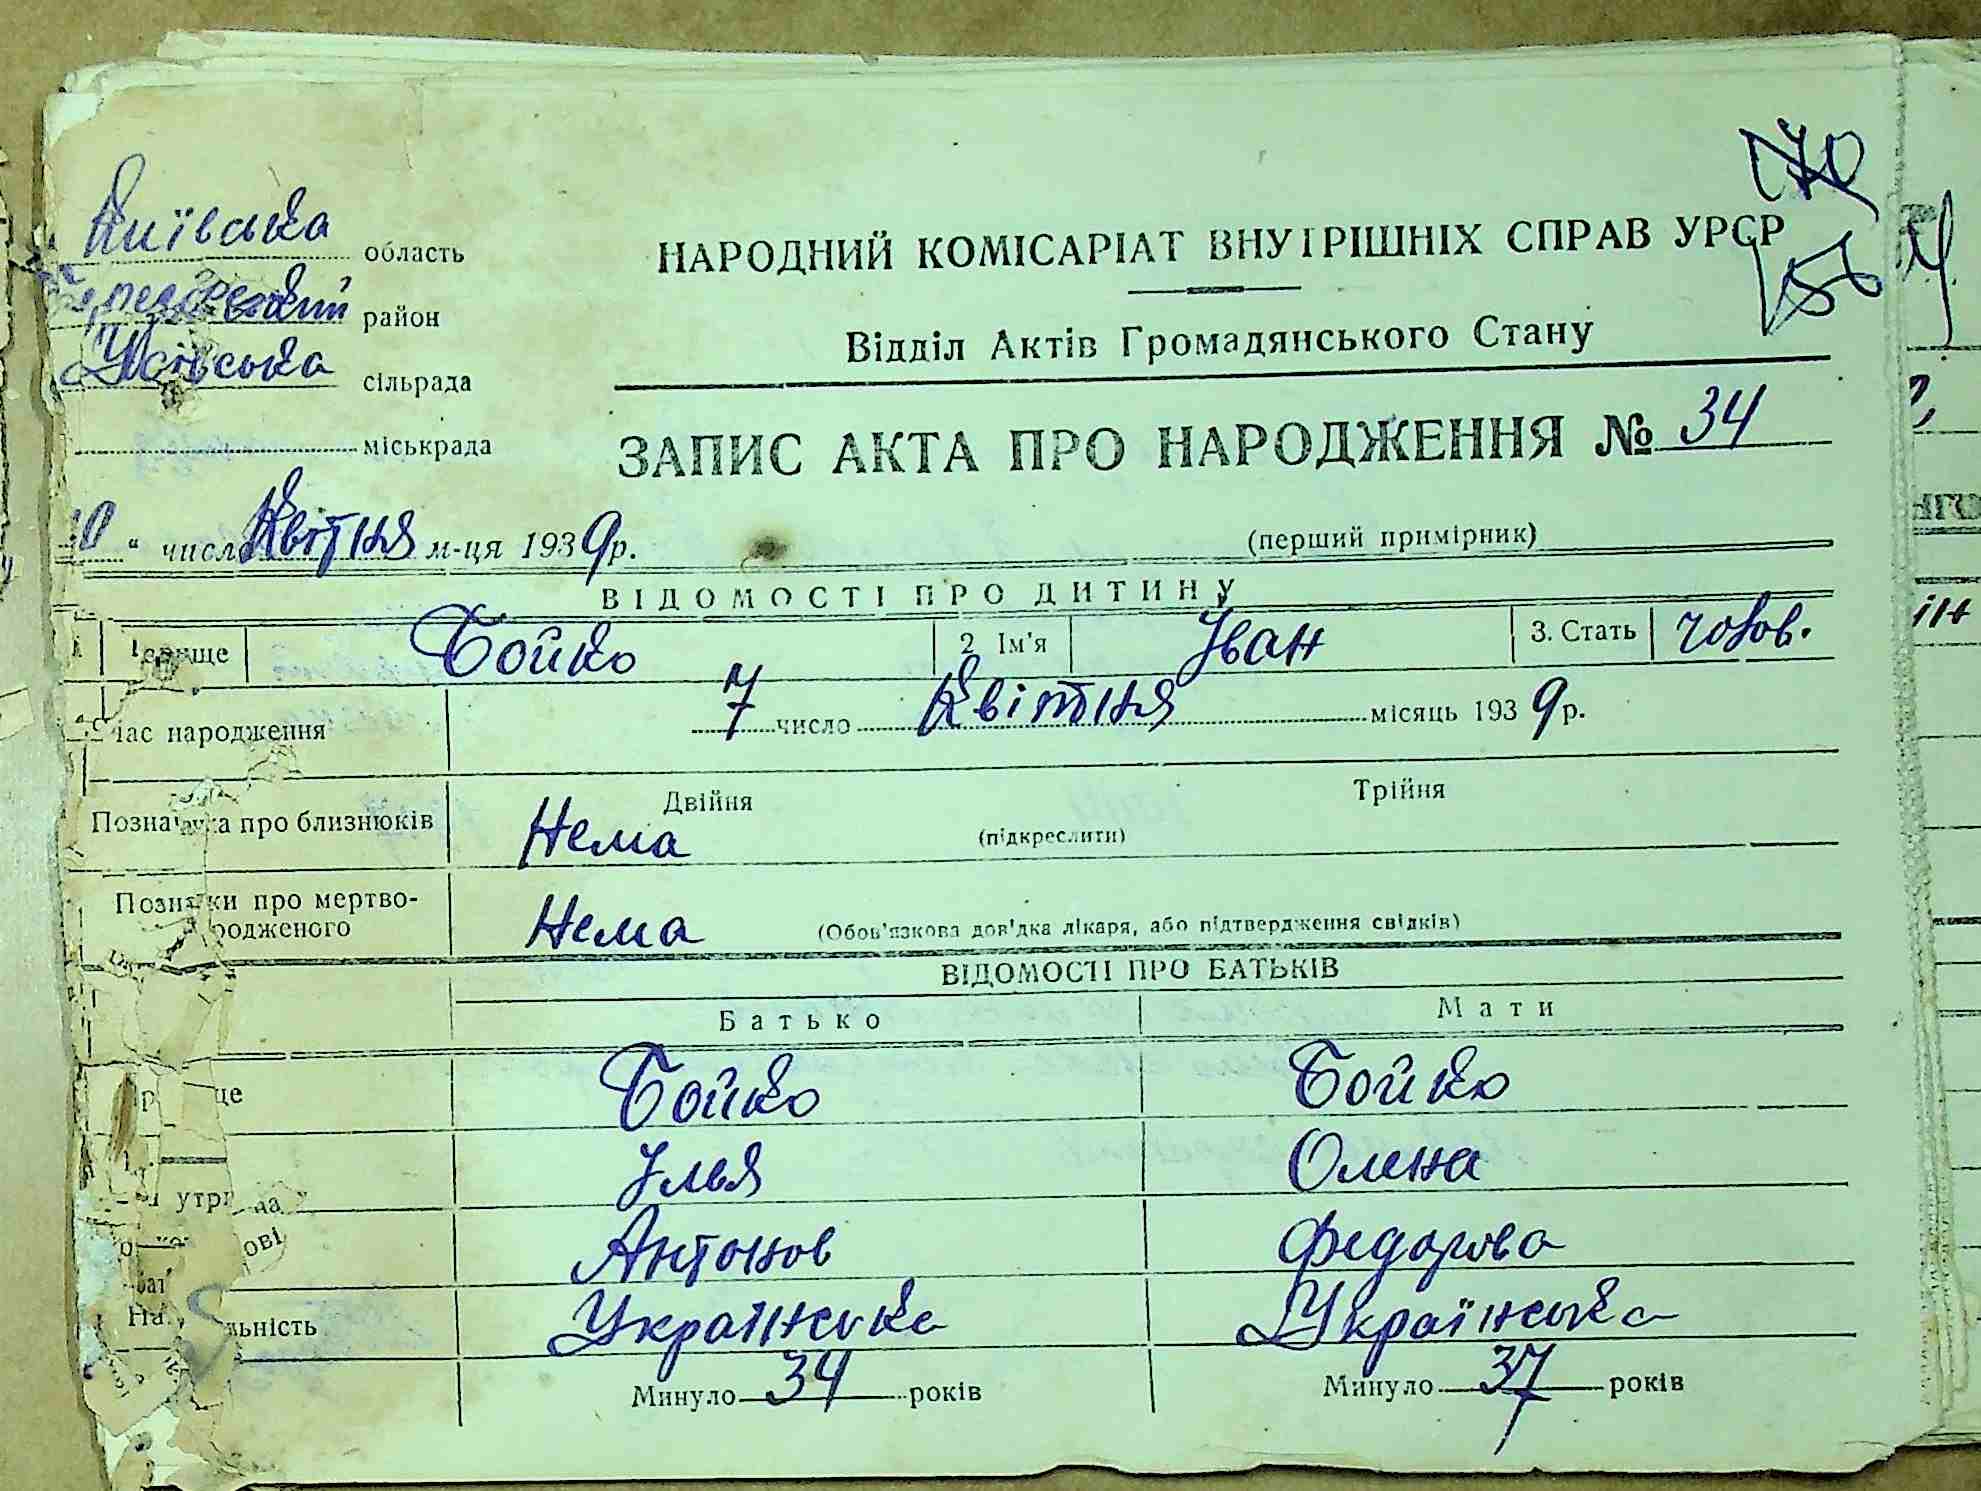 Київська область
район
Усівська сільрада
міськрада
НАРОДНИЙ КОМІСАРІАТ ВНУТРІШНІХ СПРАВ УРСР
Відділ Актів Громадянського Стану
ЗАПИС АКТА ПРО НАРОДЖЕННЯ № 34
(перший примірник)
10 " число Квітня м-ця 1939 р.
ВІДОМОСТІ ПРО ДИТИНУ
Бойко 2 Ім'я Іван 3. Стать чолов.
Час народження 7 число Квітня місяць 1939 р.
Двійня Трійня
Позначка про близнюків Нема (підкреслити)
Позначки про мертвородженого Нема (Обов'язкова дов'дка лікаря, або підтвердження свідків)
ВІДОМОСТІ ПРО БАТЬКІВ
Батько Мати
Бойко Бойко
Ілья Олена
Антонов Федорова
Українська Українська
Минуло 34 років Минуло 37 років